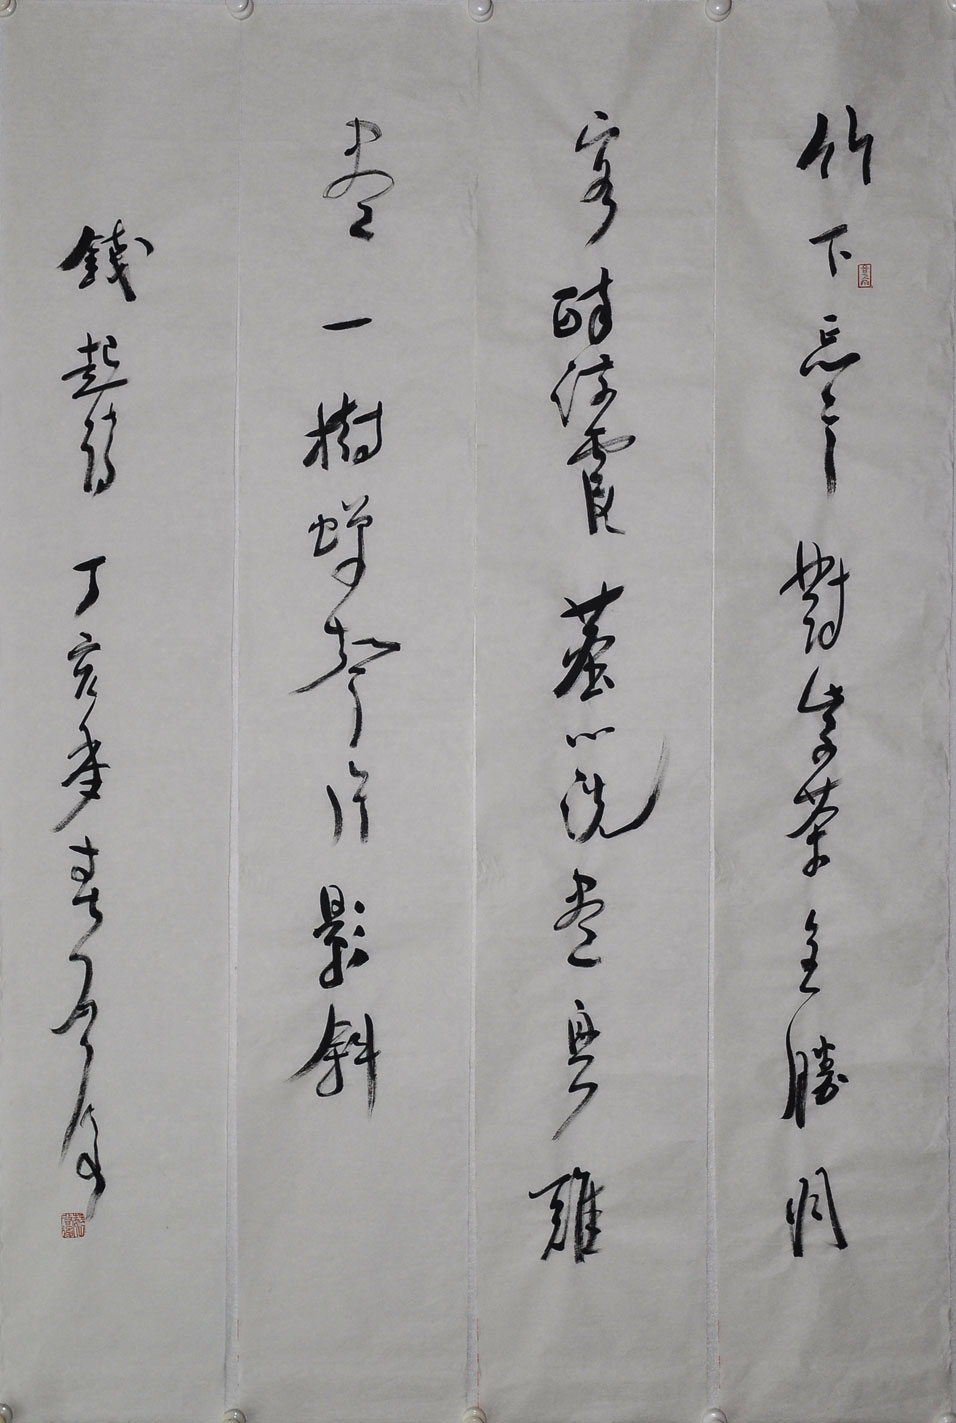 竹下忘言對紫茶全勝羽
客醉流霞塵心洗盡興難
盡一樹蟬聲片影斜
錢起詩丁亥年春